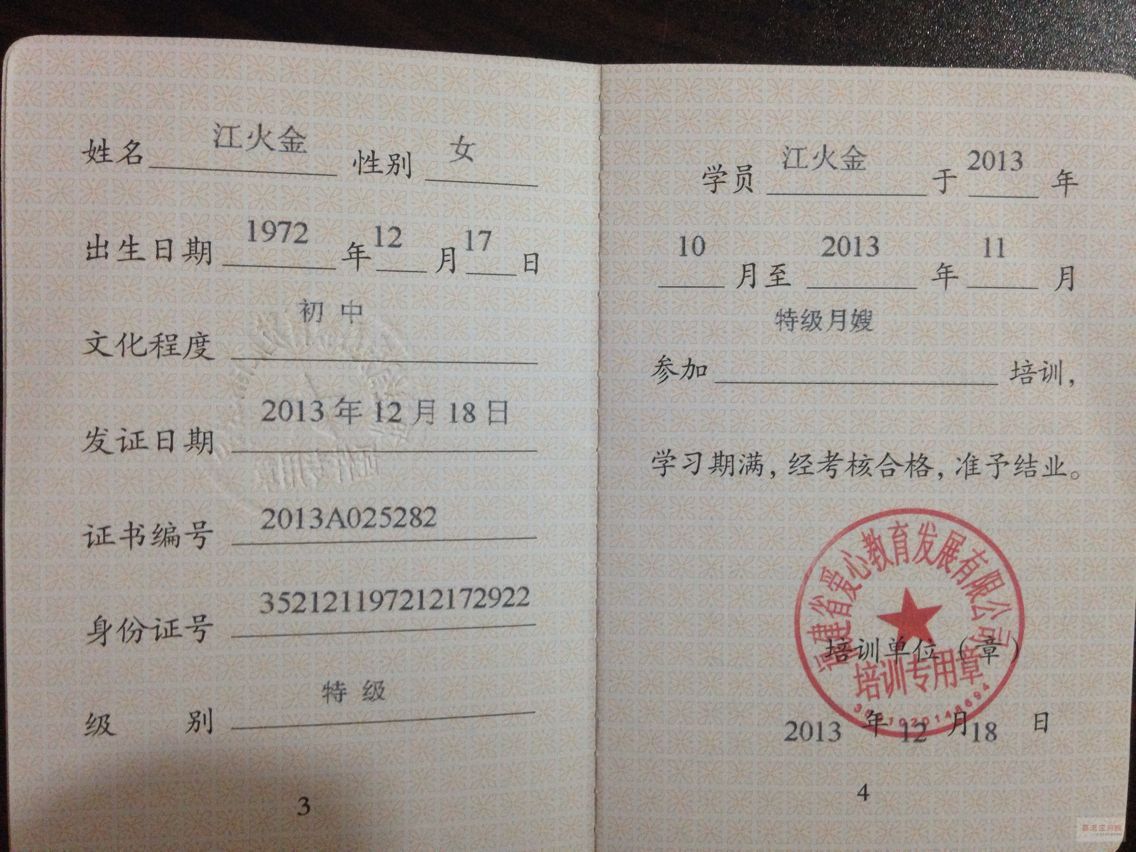 姓名 江火金 性别 女
出生日期 1972 年 12 月 17 日
文化程度 初中
发证日期 2013年12月18日
证书编号 2013A025282
身份证号 352121197212172922
级别 特级
3
学员 江火金 于 2013 年
10 月至 2013 年 11 月
参加 特级月嫂 培训，
学习期满，经考核合格，准予结业。
福建省爱心教育发展有限公司
培训单位（章）
培训专用章
2013 年 12 月 18 日
4